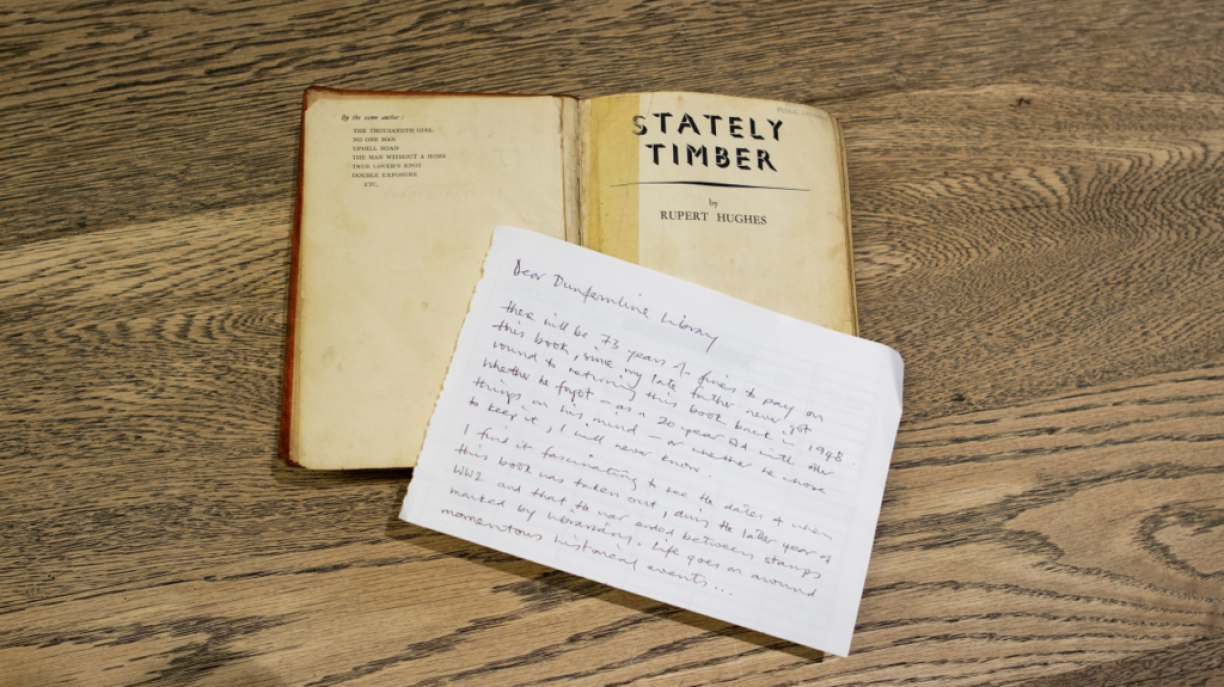 By the same author :
THE THOUSANDTH GIRL
NO ONE MAN
UPHILL ROAD
THE MAN WITHOUT A HOME
TRUE LOVER'S KNOT
DOUBLE EXPOSURE
ETC.
STATELY
TIMBER
by
RUPERT HUGHES
Dear Dunfermline Library
there will be 73 years of fines to pay on
this book, since my late father never got
round to returning this book back in 1948.
Whether he forgot – as a 20 year old with other
things on his mind – or whether he chose
to keep it, I will never know.
I find it fascinating to see the dates of when
this book was taken out, during the latter year of
WW2 and that the war ended between stamps
marked by librarians. Life goes on around
momentous historical events...